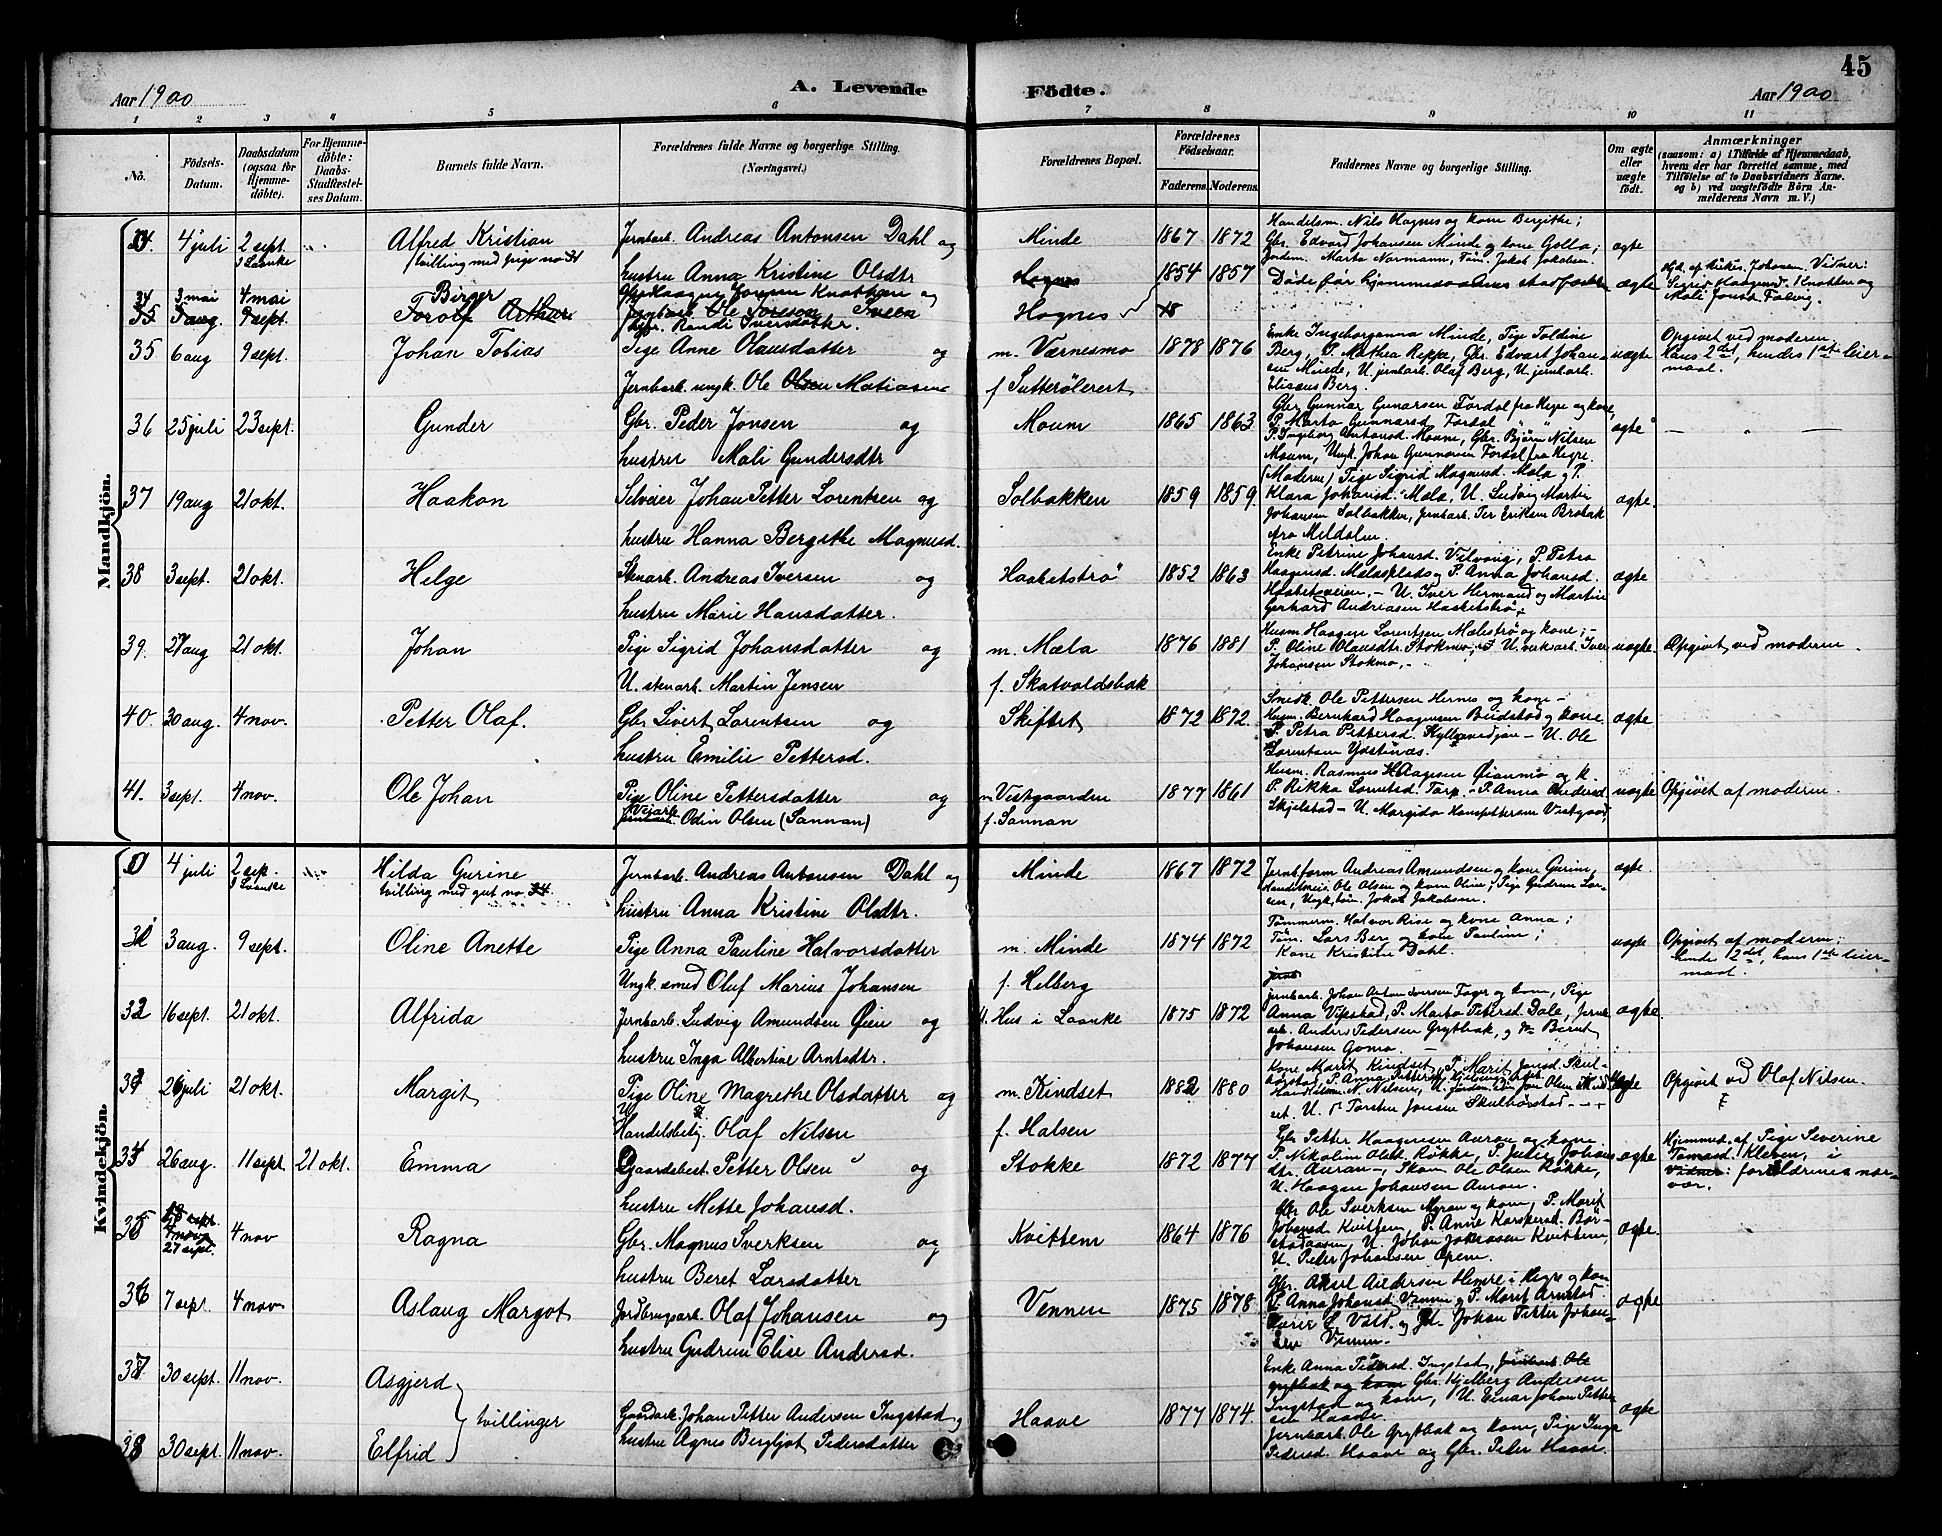 45
Aar 1900
A. Levende Fødte.
Aar 1900
1 2 3 4 5 6 7 8 9 10 11
No.
Födsels-Datum.
Daabsdatum (ogsaa for Hjemmedöbte).
For Hjemmedöbte: Daabs-Stadfæstelses Datum.
Barnets fulde Navn.
Forældrenes fulde Navne og borgerlige Stilling. (Næringsvei.)
Forældrenes Bopæl.
Forældrenes Födselsaar.
Faderens. Moderens.
Faddernes Navne og borgerlige Stilling.
Om ægte eller uægte født.
Anmærkninger
(saasom: a) i Tilfælde af Hjemmedaab,
hvem der har forrettet samme, med
Tilföielse af to Daabsvidners Navne.
og b) ved uægtefödte Börn An-
melderens Navn m. V.)
Mandkjön.
4 juli 2 sept. Alfred Kristian Jernbarb. Andreas Antonsen Dahl og Minde 1867 1872 ægte
Handelsm. Nils Hognes og kone Bergithe;
Gbr. Edvard Johansen Minde og kone Golla;
Jordem. Marta Normann, Tøm. Jakob Jakobsen.
tvilling med pige no 31
hustru Anna Kristine Olsdtr
34 3 mai 4 mai Birger Hognes 1854 1857 Døde før hjemmedaabens stadfæstelse ægte
35 5 aug. 9 sept. Torolf Arthur
Gbr. Randi Iversdatter.
35 6 aug 9 sept. Johan Tobias Pige Anne Olausdatter og m. Værnesmo 1878 1876 uægte Opgivet ved moderen.
Hans 2det, hendes 1ste leiermaal.
Enke Ingeborganna Minde, Pige Toldine
Berg, P. Mathea Reppe, Gbr. Edvart Johan-
sen Minde, U. jernbarb. Olaf Berg, U. jernbarb.
Elisæus Berg.
Jernbarb. ungk. Ole Olsen Matiasen f. Sutterølerert
36 25 juli 23 sept. Gunder Gbr. Peder Jonsen og Moum 1865 1863 ægte
Gbr Gunnar Gunarsen Fordal fra Hegre og kone,
P. Marta Gunnarsd. Fordal
P. Ingeborg Antonsd. Moum, Gbr. Bjørn Nilsen
Moum, Ungk. Johan Gunnarsen Fordal fra Hegre.
hustru Mali Gundersdtr
37 19 aug 21 okt. Haakon Selveier Johan Petter Lorentsen og Solbakken 1859 1859. ægte.
(Moderen) Pige Sigrid Magnusd. Mæla og P.
Klara Johansd. Mæla, U. Ludvig Martin
Johansen Solbakken, Jernbarb. Per Eriksen Brobak
fra Meldalen.
hustru Hanna Bergithe Magnusd.
38 3 sept. 21 okt. Helge Stenarb. Andreas Iversen og Haabetstrø 1852 1863 ægte
Enke Petrine Johansd. Velvang, P. Petra
Haagensd. Mælasplads og P. Anna Johansd.
Haabetsveien, - U. Iver Hermand og Martin
Gerhard Andreasen Haabetstrø
hustru Marie Hansdatter.
39. 27 aug 21 okt. Johan Pige Sigrid Johansdatter og m. Mæla 1876 1881 uægte. Opgivet ved moderen.
Husm. Haagen Lorentsen Mælestrø og kone; -
P. Oline Olausdtr. Stokmo, U. verksarb. Iver
Johansen Stokmo, -
U. stenarb. Martin Jensen f. Skatvoldsbak
40. 30 aug. 4 nov. Petter Olaf. Gbr Sivert Lorentsen og Skiftet 1872 1872. ægte
Smedk. Ole Pettersen Hernes og kone -
Husm. Bernhard Haagensen Budstad og kone.
P. Petra Pettersd. - U. Ole
Lorentsen Ydstines.
hustru Emilie Pettersd.
41. 3 sept. 4 nov. Ole Johan Pige Oline Pettersdatter og m Vestgaarden 1877 1861 uægte Opgivet af moderen.
Husm. Rasmus Haagensen Øianmo og k.
P. Rikka Lorntsd. Tarp - P. Anna Andersd
Skjelstad - U. Margido Hanspettersen Vestgaard,
Vejarb. Odin Olsen (Sannan) f. Sannan
Kvindekjön.
4 juli 2 sep. Hilda Gurine Jernbarb. Andreas Antonsen Dahl og Minde 1867 1872 ægte.
Jernbform. Andreas Amundsen og kone Gurine,
Handelsrei. Ole Olsen og kone Oline, Pige Gudrun Lar-
sen, Ungk. tøm. Jakob Jakobsen.
tvilling med gut no 34.
hustru Anna Kristine Olsdtr.
31 3 aug. 9 sept. Oline Anette Pige Anna Pauline Halvorsdatter m. Minde 1874 1872 uægte Opgivet af moderen;
hendes 2det, hans 1ste leiermaal.
Tømmerm. Halvor Rise og kone Anna;
Tøm. Lars Ber kone Pauline;
Kone Kristine Dahl.
Ungk. smed Oluf Marius Johansen f. Helberg
32 16 sept. 21 okt. Alfrida Jernbarb. Ludvig Amundsen Øien og Hus i Laanke 1875 1872 ægte.
jernbarb. Johan Anton Iversen Fager og kone, Pige
Anna Vipstad, P. Marta Petersd. Dale, Jernb-
arb. Anders Pedersen Grytbak, og do Bernt
Johansen Gomo. -
hustru Inga Albertine Arntsdtr.
33 26 juli 21 okt. Margit Pige Oline Magrethe Olsdatter og m. Kindset 1882 1880 Opgivet ved Olaf Nilsen.
Kone Marit Kindset, P. Marit Jonsd. Skul-
børstad, P. Anna Pettersd.
Handelsm. N. Nilsen, Jon Olsen Kind-
set. U. Torsten Jonsen Skulbørstad - -
Handelsbetj. Olaf Nilsen f. Halsen
34 26 aug. 11 sept 21 okt. Emma Gaardsbest. Petter Olsen og Stokke 1872 1877 ægte
Hjemmed. af Pige Severine
Tomasd. Kleven, i
forældrenes nær-
vær.
Gbr Petter Haagensen Auran og kone
P. Nikoline Olsd. Røkke, P. Julie Johans-
dtr. Auran -, Skom. Ole Olsen Røkke,
U. Haagen Johansen Auran.
hustru Mette Johansd.
35 27 sept. 4 nov Ragna Gbr. Magnus Sverksen og Kvittem 1864 1876 ægte.
Gbr. Ole Sverksen Myran og kone, P. Marit
Johansd. Kvittem, P. Anne Karskersd. Bør-
stadaasen, U. Johan Johansen Kvittem,
U. Peder Johansen Opem.
hustru Beret Larsdatter
36 7 sept. 4 nov. Aslaug Margot Jordbrugsarb. Olaf Johansen og Vennen 1875 1878 ægte
Gbr. Aksel Andersen Hemre i Hegre og kone
P. Anna Johansd. Vennen og P. Marit Arntsd
og Johan Petter Johan-
sen Vennen -
hustru Gudrun Elise Andersd.
37 30 sept. 11 nov. Asgjerd
tvillinger Gaardarb. Johan Petter Andersen Ingstad og Haave 1877 1874. ægte
Enke Anna Pedersd. Ingstad, Jernbarb. Ole
Grytbak og kone Gbr. Kjelberg Andersen
Ingstad og kone, U. Einar Johan Petter-
sen Haave.
38 30 sept. 11 nov. Elfrid hustru Agnes Bergljot Pedersdatter
Jernbarb. Ole Grytbak og kone, Pige Inga
Pedersd. Haave og Gbr. Peder Haave.